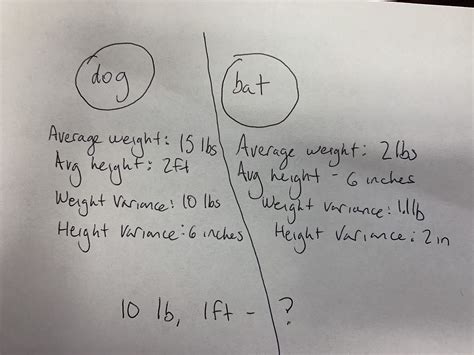 dog
Average weight: 15 lbs
Avg height: 2ft
Weight Variance: 10 lbs
Height Variance: 6 inches
bat
Average weight: 2lbs
Avg height - 6 inches
Weight Variance: 1.1lb
Height Variance: 2 in
10 lb, 1ft - ?